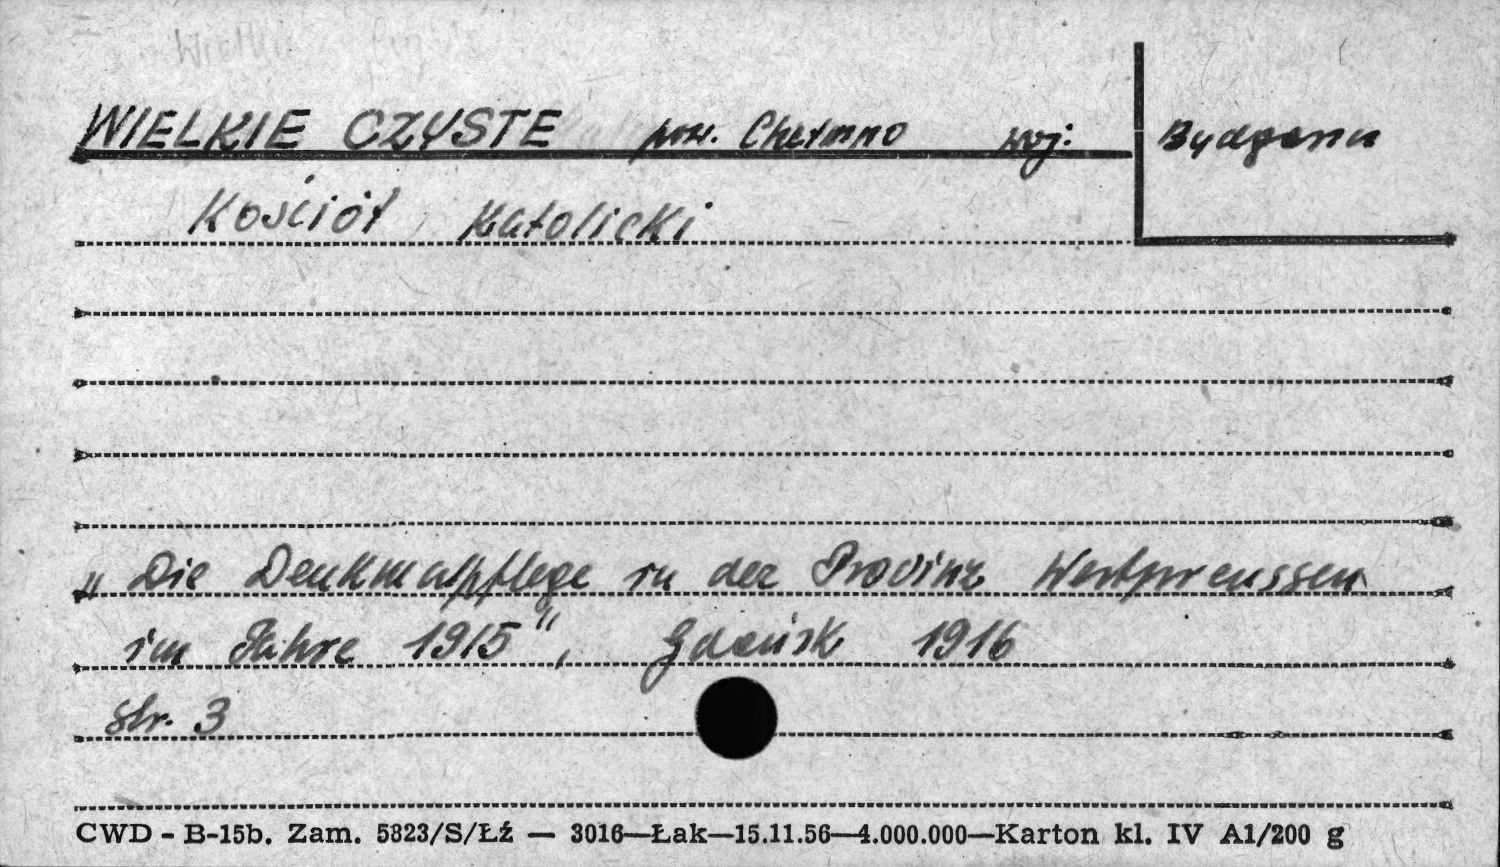 WIELKIE CZYSTE pow. Chełmno woj. Bydgoszcz
Kościół Katolicki
„Die Denkmalpflege in der Provinz Westpreussen
im Jahre 1915", Gdańsk 1916
str. 3
CWD - B-15b. Zam. 5823/S/Łź — 3016—Łak—15.11.56—4.000.000—Karton kl. IV A1/200 g